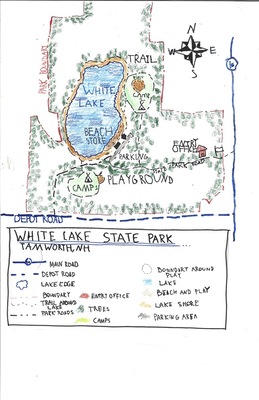 N
W E
S
TRAIL
PARK BOUNDARY
CAMP
16
WHITE
LAKE
ENTRY
OFFICE
BEACH
STORE
PARKING
PARK ROAD
PLAYGROUND
CAMPS
DEPOT ROAD
WHITE LAKE STATE PARK
TAMWORTH, NH
MAIN ROAD
DEPOT ROAD
LAKE EDGE
BOUNDARY
TRAIL AROUND
LAKE
PARK ROADS
ENTRY OFFICE
TREES
CAMPS
BOUNDARY AROUND
PLAY
LAKE
BEACH AND PLAY
LAKE SHORE
PARKING AREA